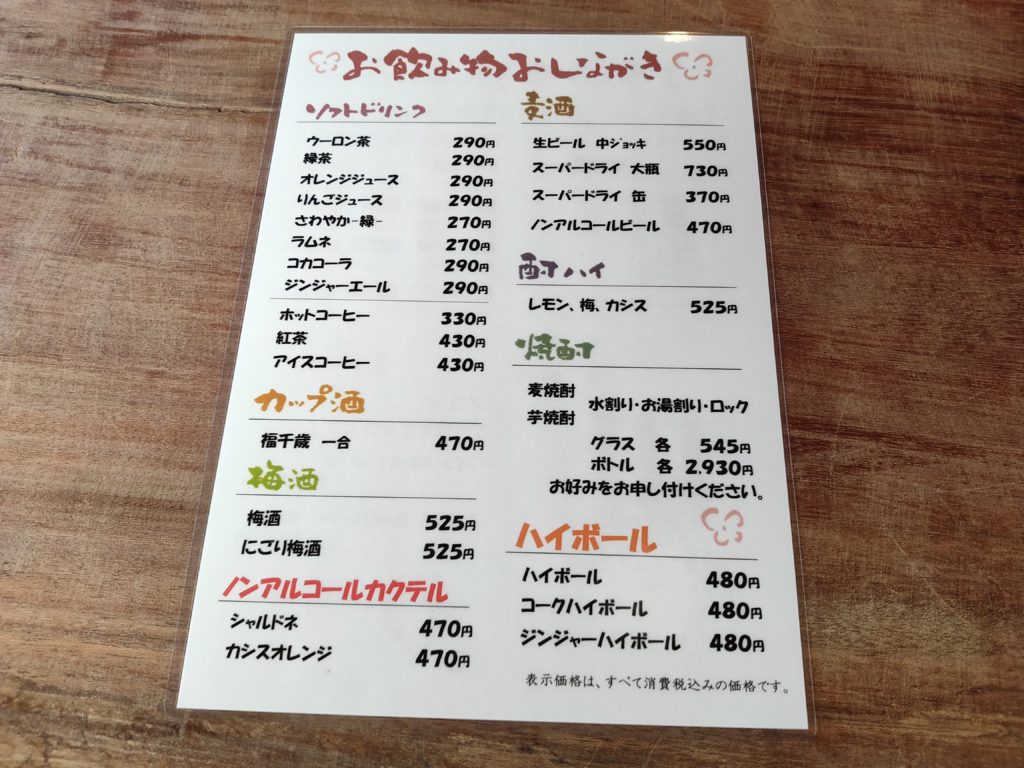 お飲み物おしながき
ソフトドリンク
ウーロン茶 290円
緑茶 290円
オレンジジュース 290円
りんごジュース 290円
さわやか-緑- 270円
ラムネ 270円
コカコーラ 290円
ジンジャーエール 290円
ホットコーヒー 330円
紅茶 430円
アイスコーヒー 430円
カップ酒
福千歳 一合 470円
梅酒
梅酒 525円
にごり梅酒 525円
ノンアルコールカクテル
シャルドネ 470円
カシスオレンジ 470円
麦酒
生ビール 中ジョッキ 550円
スーパードライ 大瓶 730円
スーパードライ 缶 370円
ノンアルコールビール 470円
酎ハイ
レモン、梅、カシス 525円
焼酎
麦焼酎
芋焼酎
水割り・お湯割り・ロック
グラス 各 545円
ボトル 各 2,930円
お好みをお申し付けください。
ハイボール
ハイボール 480円
コークハイボール 480円
ジンジャーハイボール 480円
表示価格は、すべて消費税込みの価格です。